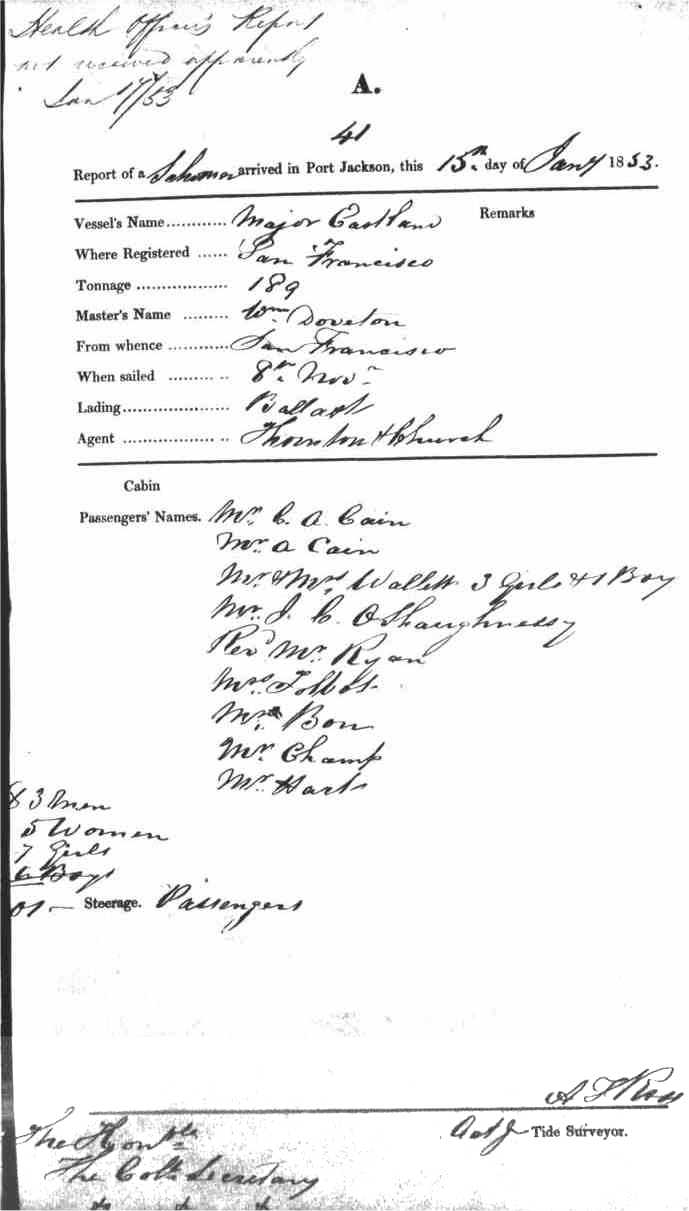 Health Officer's Report
not received apparently
Jan 17/53
A.
41
Report of a Schooner arrived in Port Jackson, this 15th. day of Jany 1853.
Vessel's Name............ Major Eastland Remarks
Where Registered ...... San Francisco
Tonnage .................. 189
Master's Name ......... Wm Doveton
From whence ............ San Francisco
When sailed ......... .. 8th. Novr
Lading..................... Ballast
Agent ..................... .. Thornton & Church
Cabin
Passengers' Names. Mr. C. A. Cain
Mr. A Cain
Mr. & Mrs. Wallett 3 Girls & 1 Boy
Mr. J. C. OShaughnessy
Revd Mr. Ryan
Mrs. Tolbot
Bon
Mr. Champ
Mr. Hart
83 Men
5 Women
7 Girls
6 Boys
01 — Steerage. Passengers
A F Ross
Actg Tide Surveyor.
The Honble
The Coll. Secretary